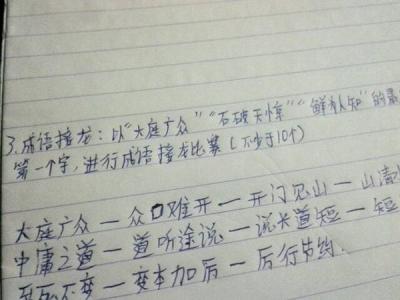 3.成语接龙:以"大庭广众""石破天惊""鲜为人知"的最
第一个字,进行成语接龙比赛(不少于10个)
大庭广众—众口难开—开门见山—山清
中庸之道—道听途说—说长道短—短
死不变—变本加厉—厉行节约.